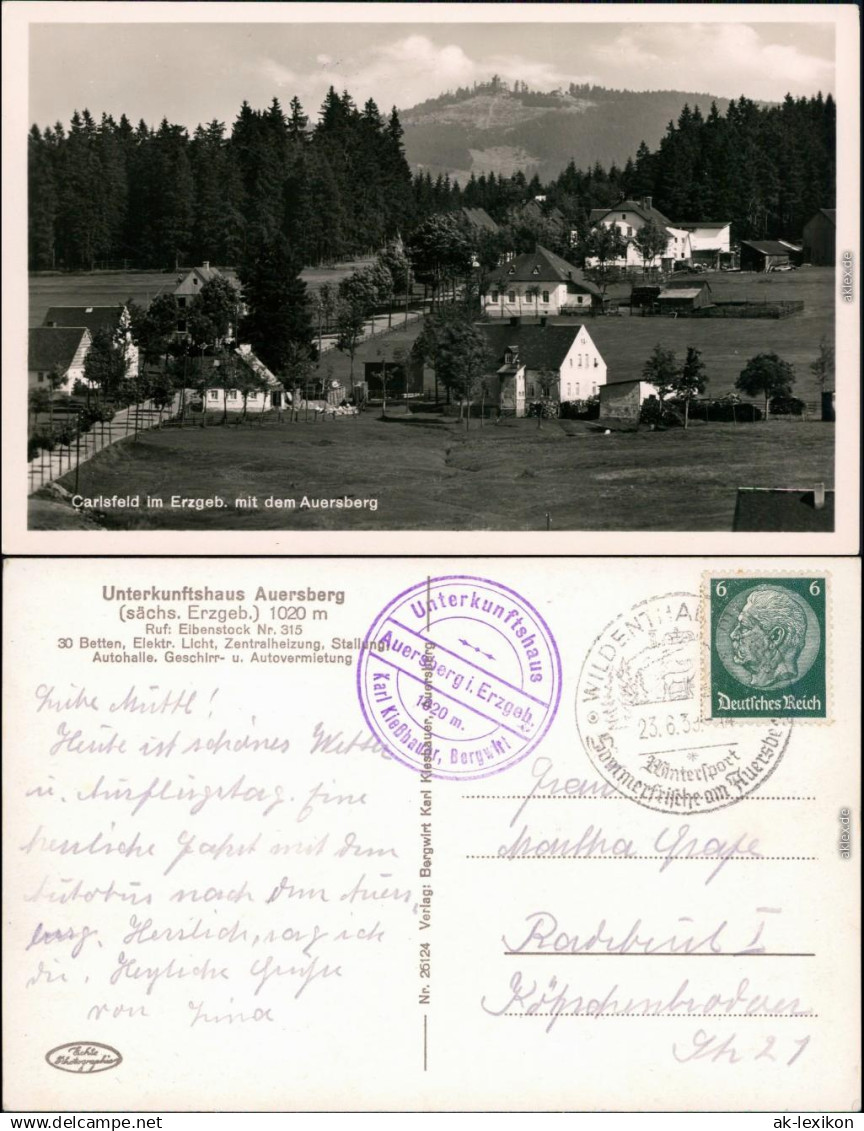 Carlsfeld im Erzgeb. mit dem Auersberg
Unterkunftshaus Auersberg
(sächs. Erzgeb.) 1020 m
Ruf: Eibenstock Nr. 315
30 Betten, Elektr. Licht, Zentralheizung, Stallung,
Autohalle. Geschirr- u. Autovermietung
Liebe Muttl!
Heute ist schönes Wetter
u. Ausflugstag. Eine
herrliche Fahrt mit dem
Autobus nach dem Auers-
berg. Herrlich, sag ich
dir. Herzliche Grüße
von
Echte
Photographie
Nr. 26124 Verlag: Bergwirt Karl Kiesbauer, Auersberg
Unterkunftshaus
Auersberg i. Erzgeb.
1020 m.
Karl Kießbauer, Bergwirt
WILDENTHAL
23.6.39
Wintersport
Sommerfrische am Auersberg
6 6
Deutsches Reich
Frau
Martha Grafe
Radebeul I
Köpschenbrodaer
Str 21
akleix.de
akleix.de
ak-lexikon.de/111
ak-lexikon